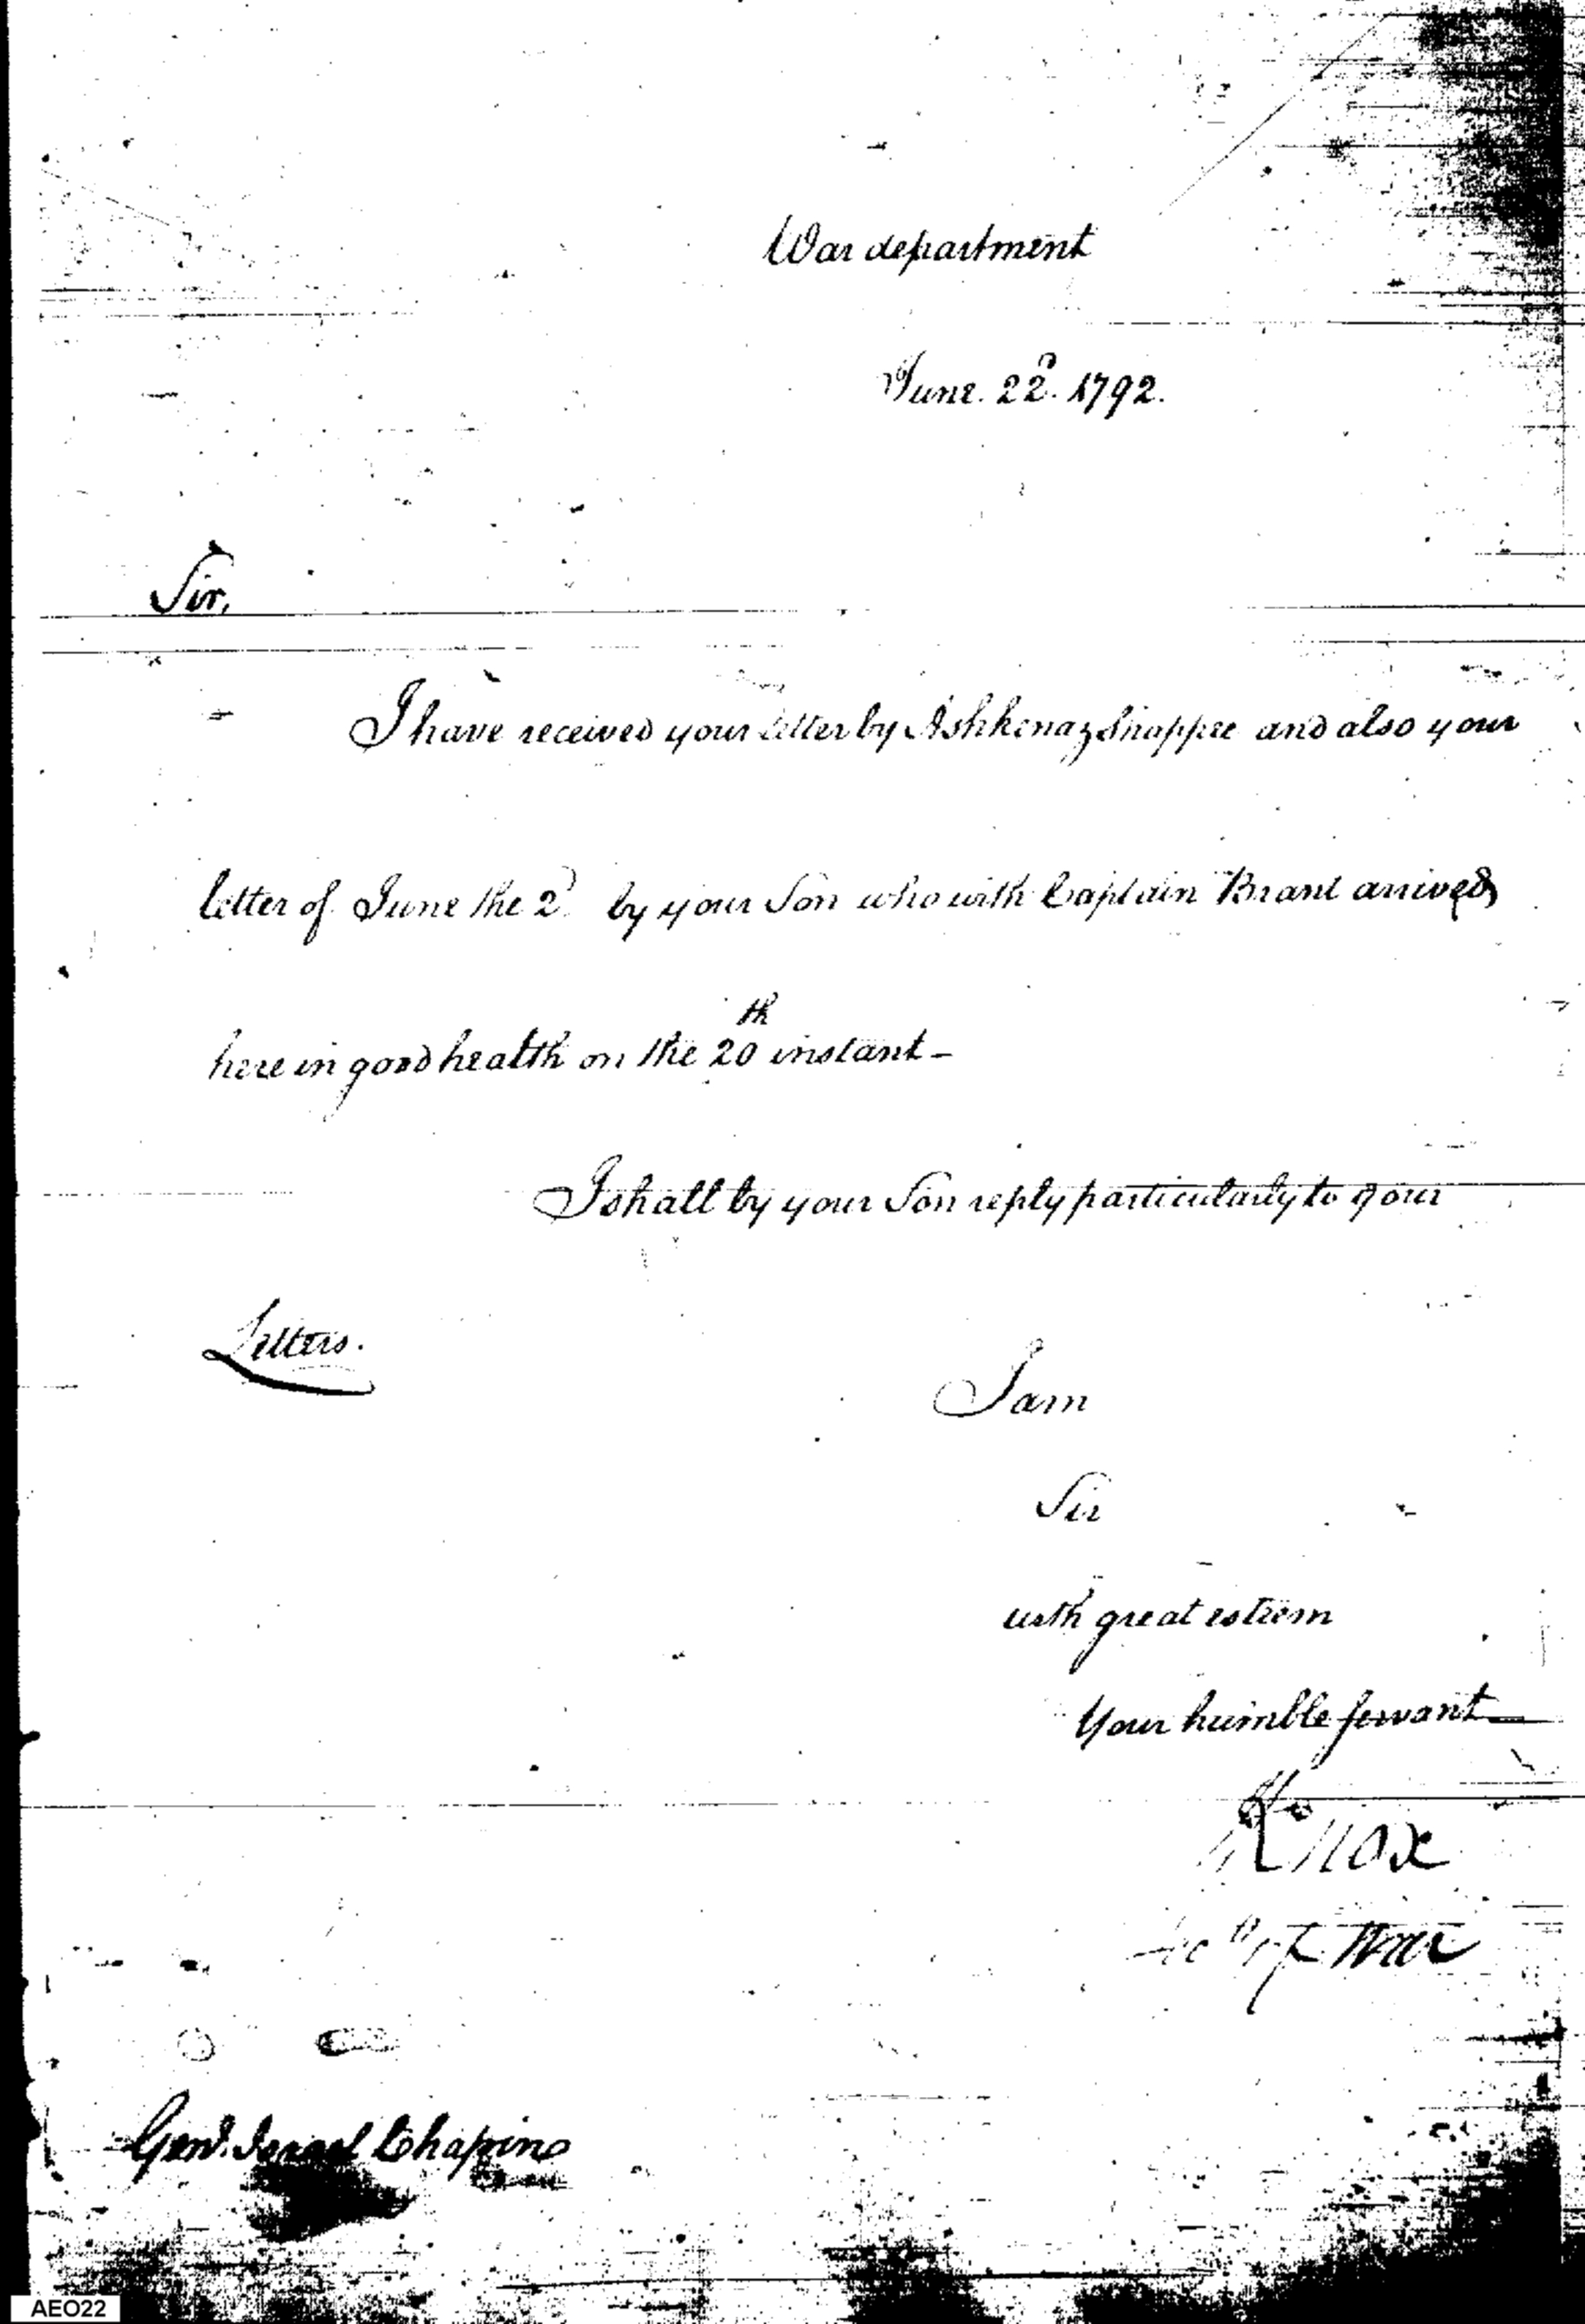 War department
June. 22d. 1792.
Sir,
I have received your letter by Ashkenaz Shappee and also your
letter of June the 2d by your Son who with Captain Brant arrived
here in good health on the 20th instant –
I shall by your Son reply particularly to your
Letters.
I am
Sir
with great esteem
Your humble servant
H Knox
Secy of War
Genl. Israel Chapin
AEO22